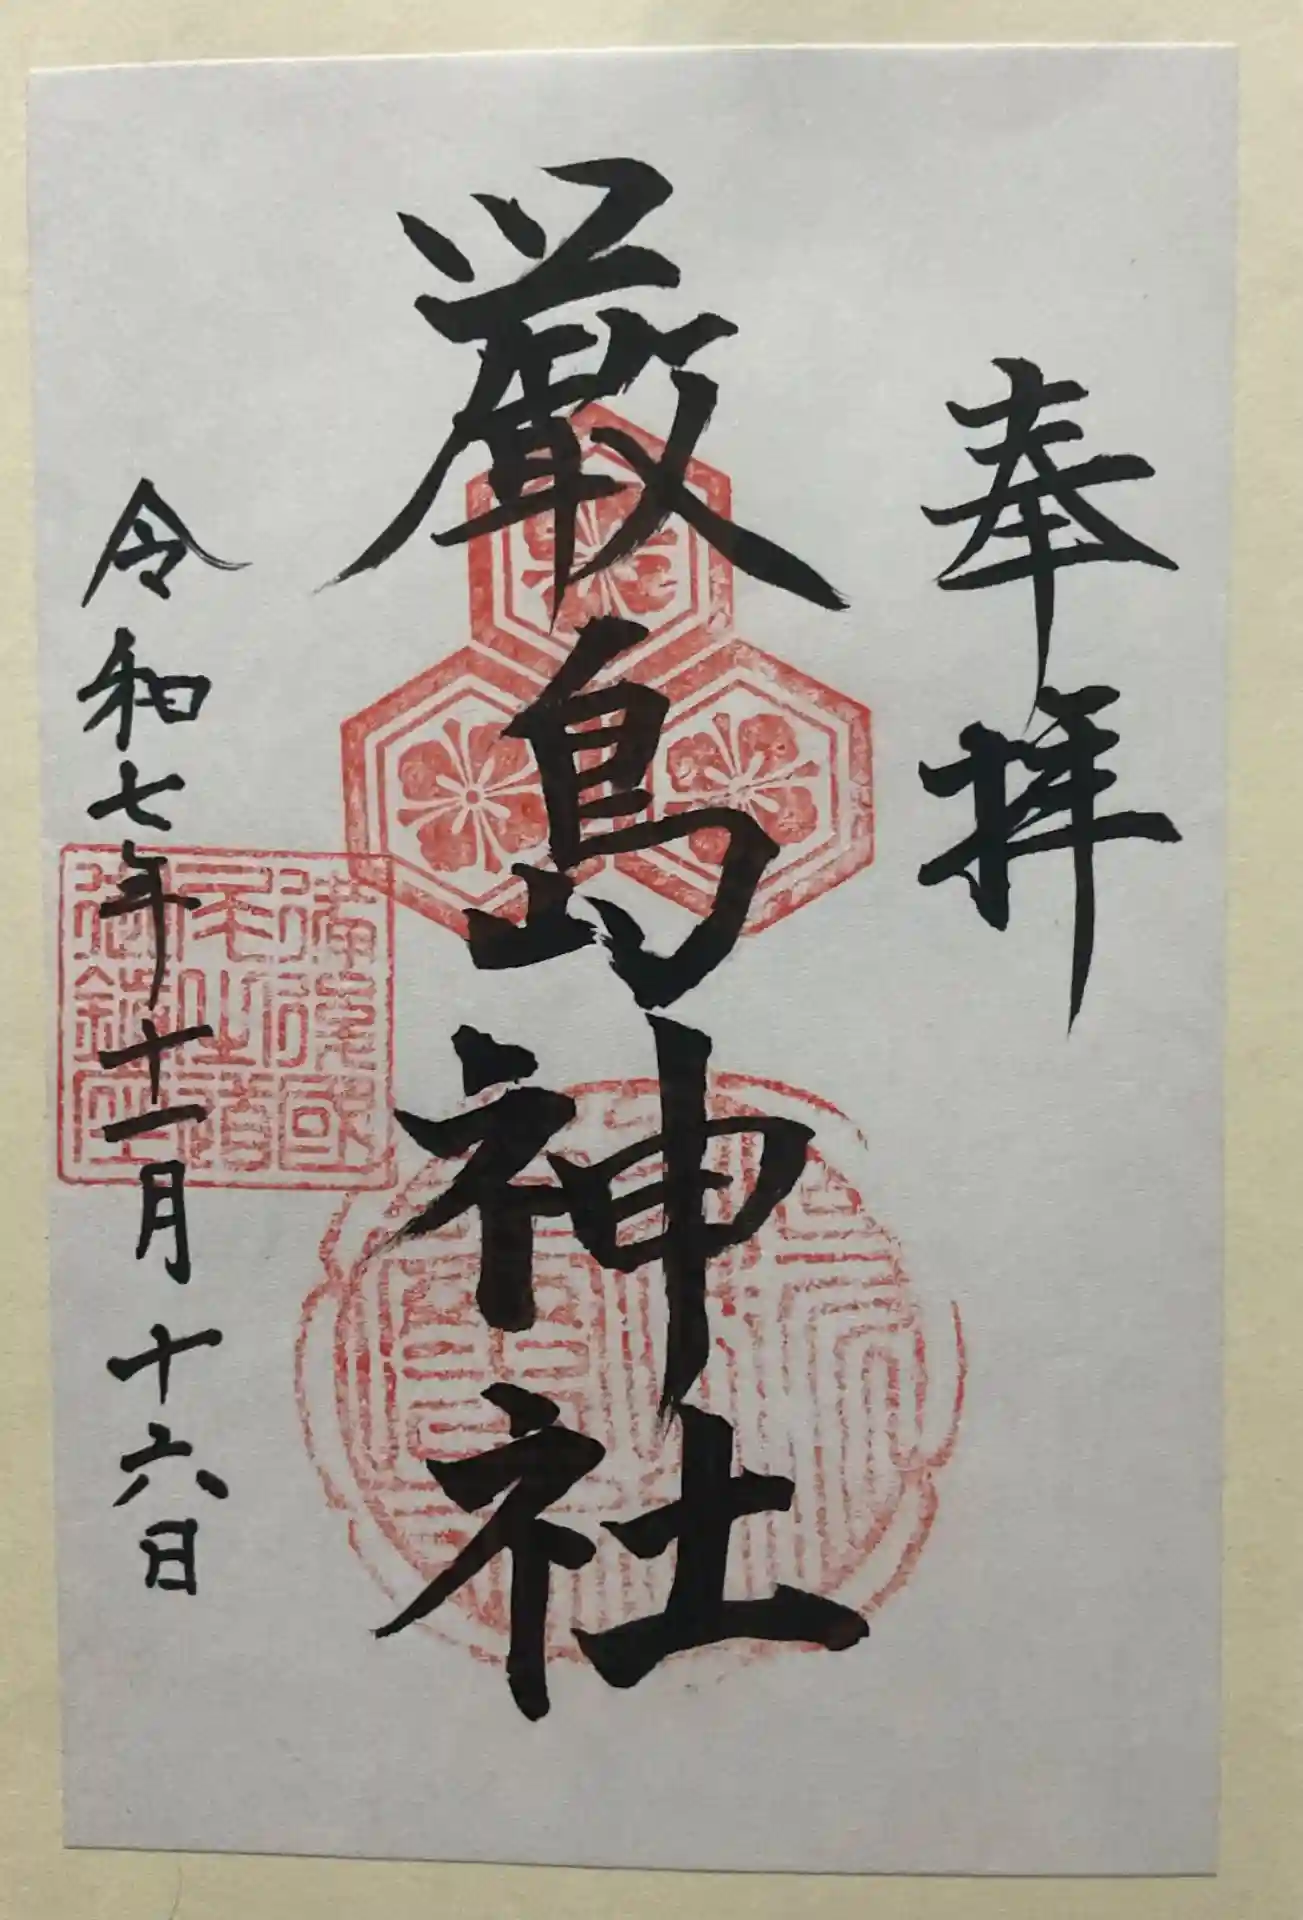 奉拝
厳島神社
令和七年十一月十六日